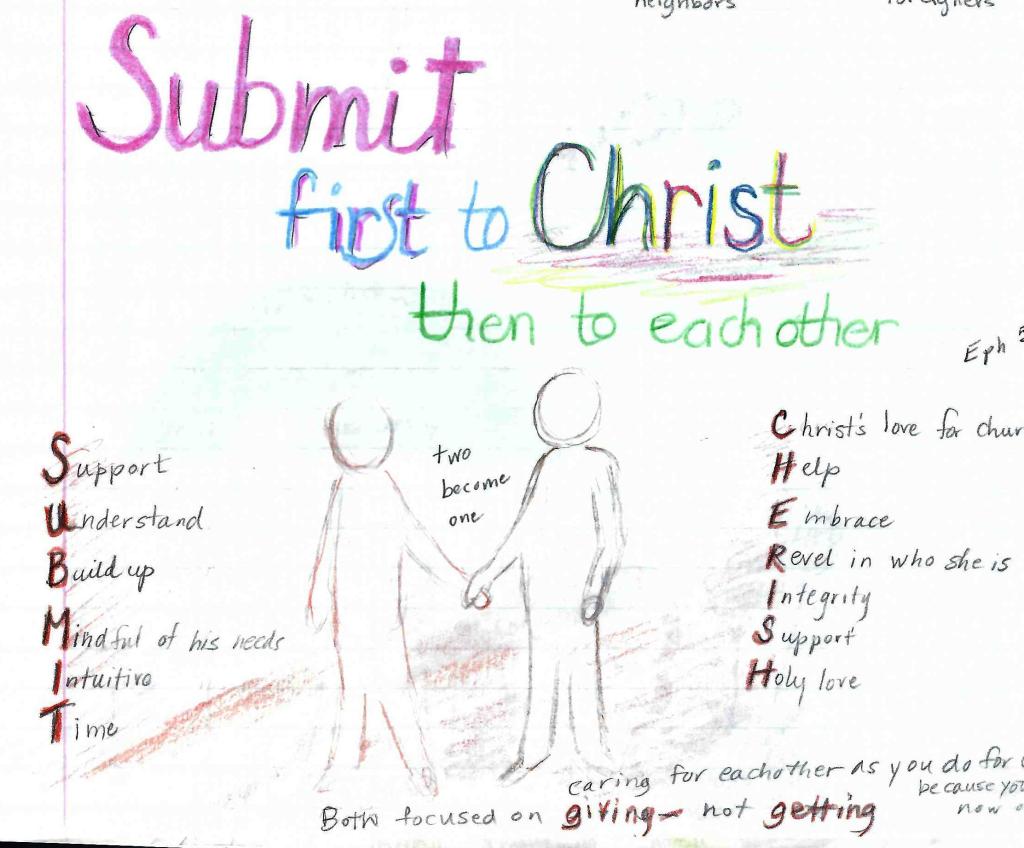 neighbors foreigners
Submit
first to Christ
then to each other
Eph 5
two
become
one
Support
Understand
Build up
Mindful of his needs
Intuitive
Time
Christ's love for chur
Help
Embrace
Revel in who she is
Integrity
Support
Holy love
caring for eachother as you do for
because you
now
Both focused on giving - not getting